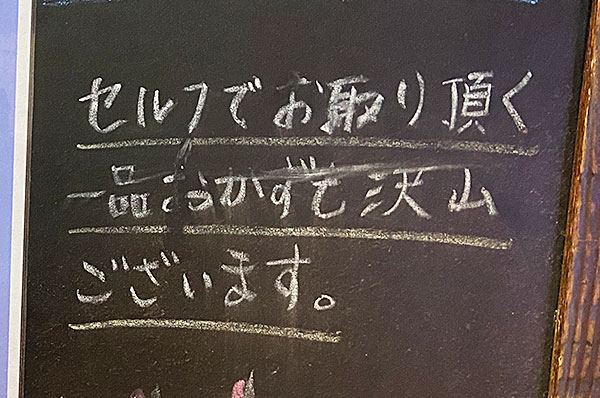 セルフでお取り頂く
一品おかずも沢山
ございます。